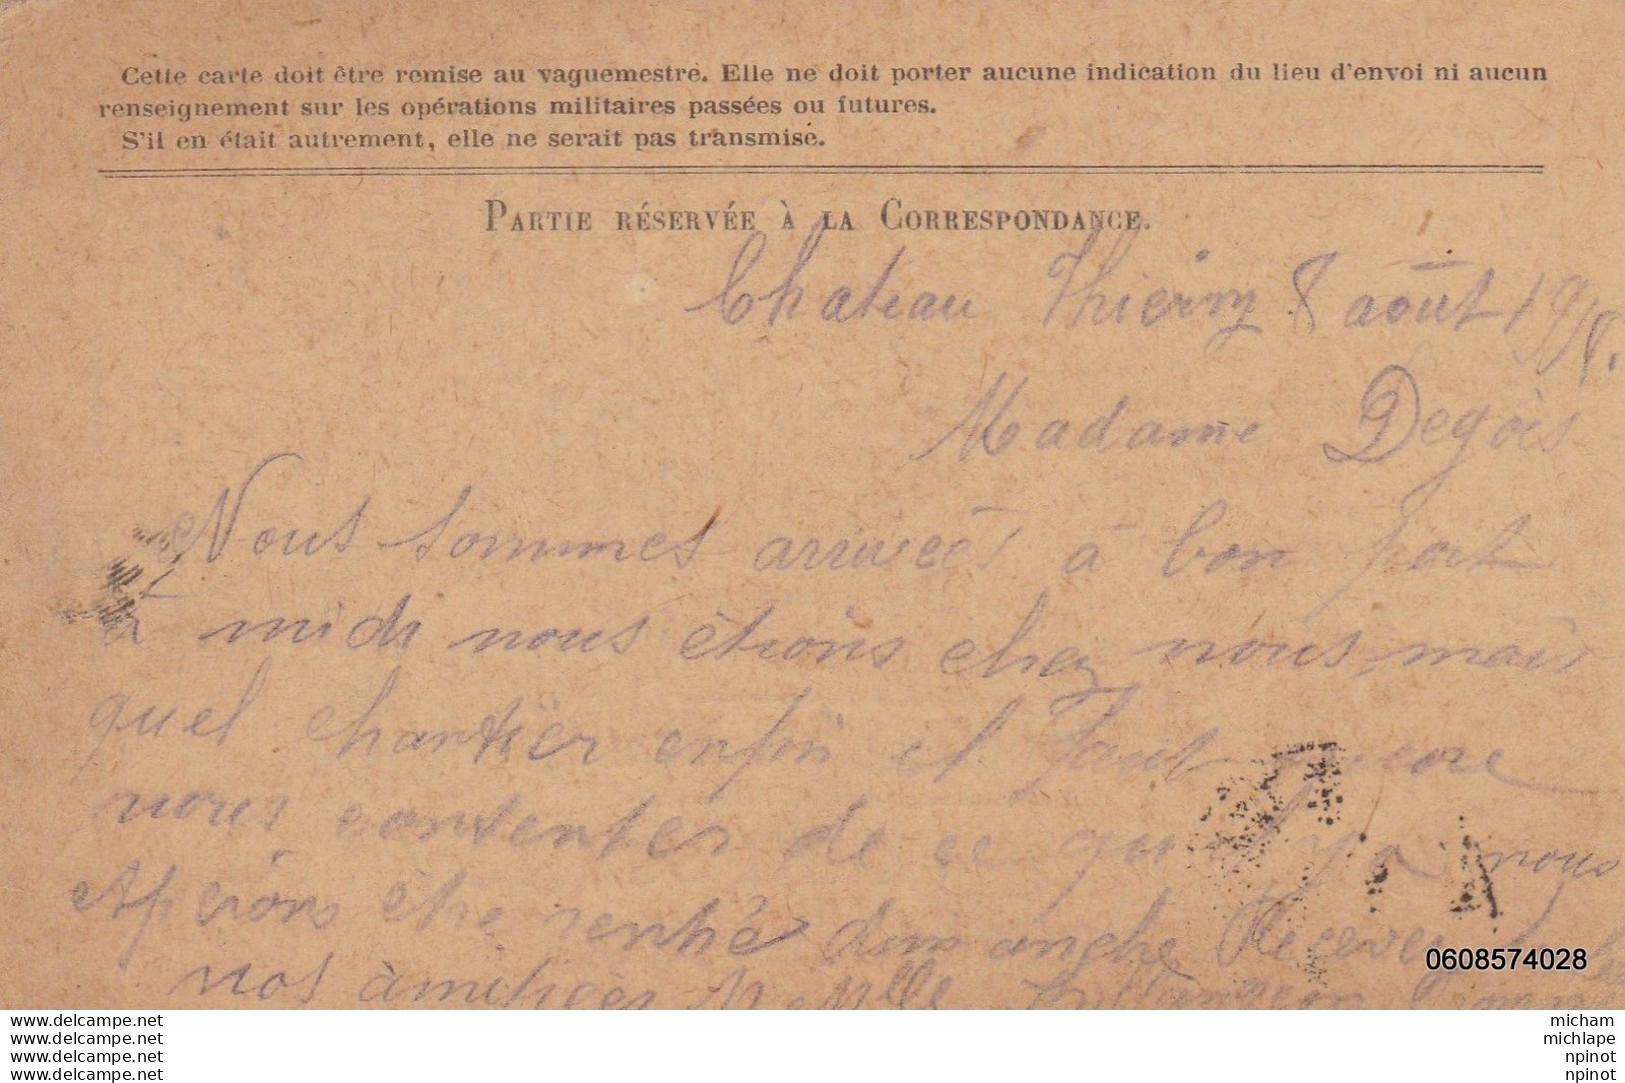 Cette carte doit être remise au vaguemestre. Elle ne doit porter aucune indication du lieu d'envoi ni aucun
renseignement sur les opérations militaires passées ou futures.
S'il en était autrement, elle ne serait pas transmise.
PARTIE RÉSERVÉE À LA CORRESPONDANCE.
Chateau Thierry 8 août 1918.
Madame Degois
Nous sommes arrivées à bon port
à midi nous étions chez nous mais
quel chantier enfin il faut encore
nous contenter de ce qu'il y a nous
espérons être rentré dimanche Recevez
nos amitiées Melle
0608574028
www.delcampe.net micham
www.delcampe.net michlape
www.delcampe.net npinot
www.delcampe.net npinot